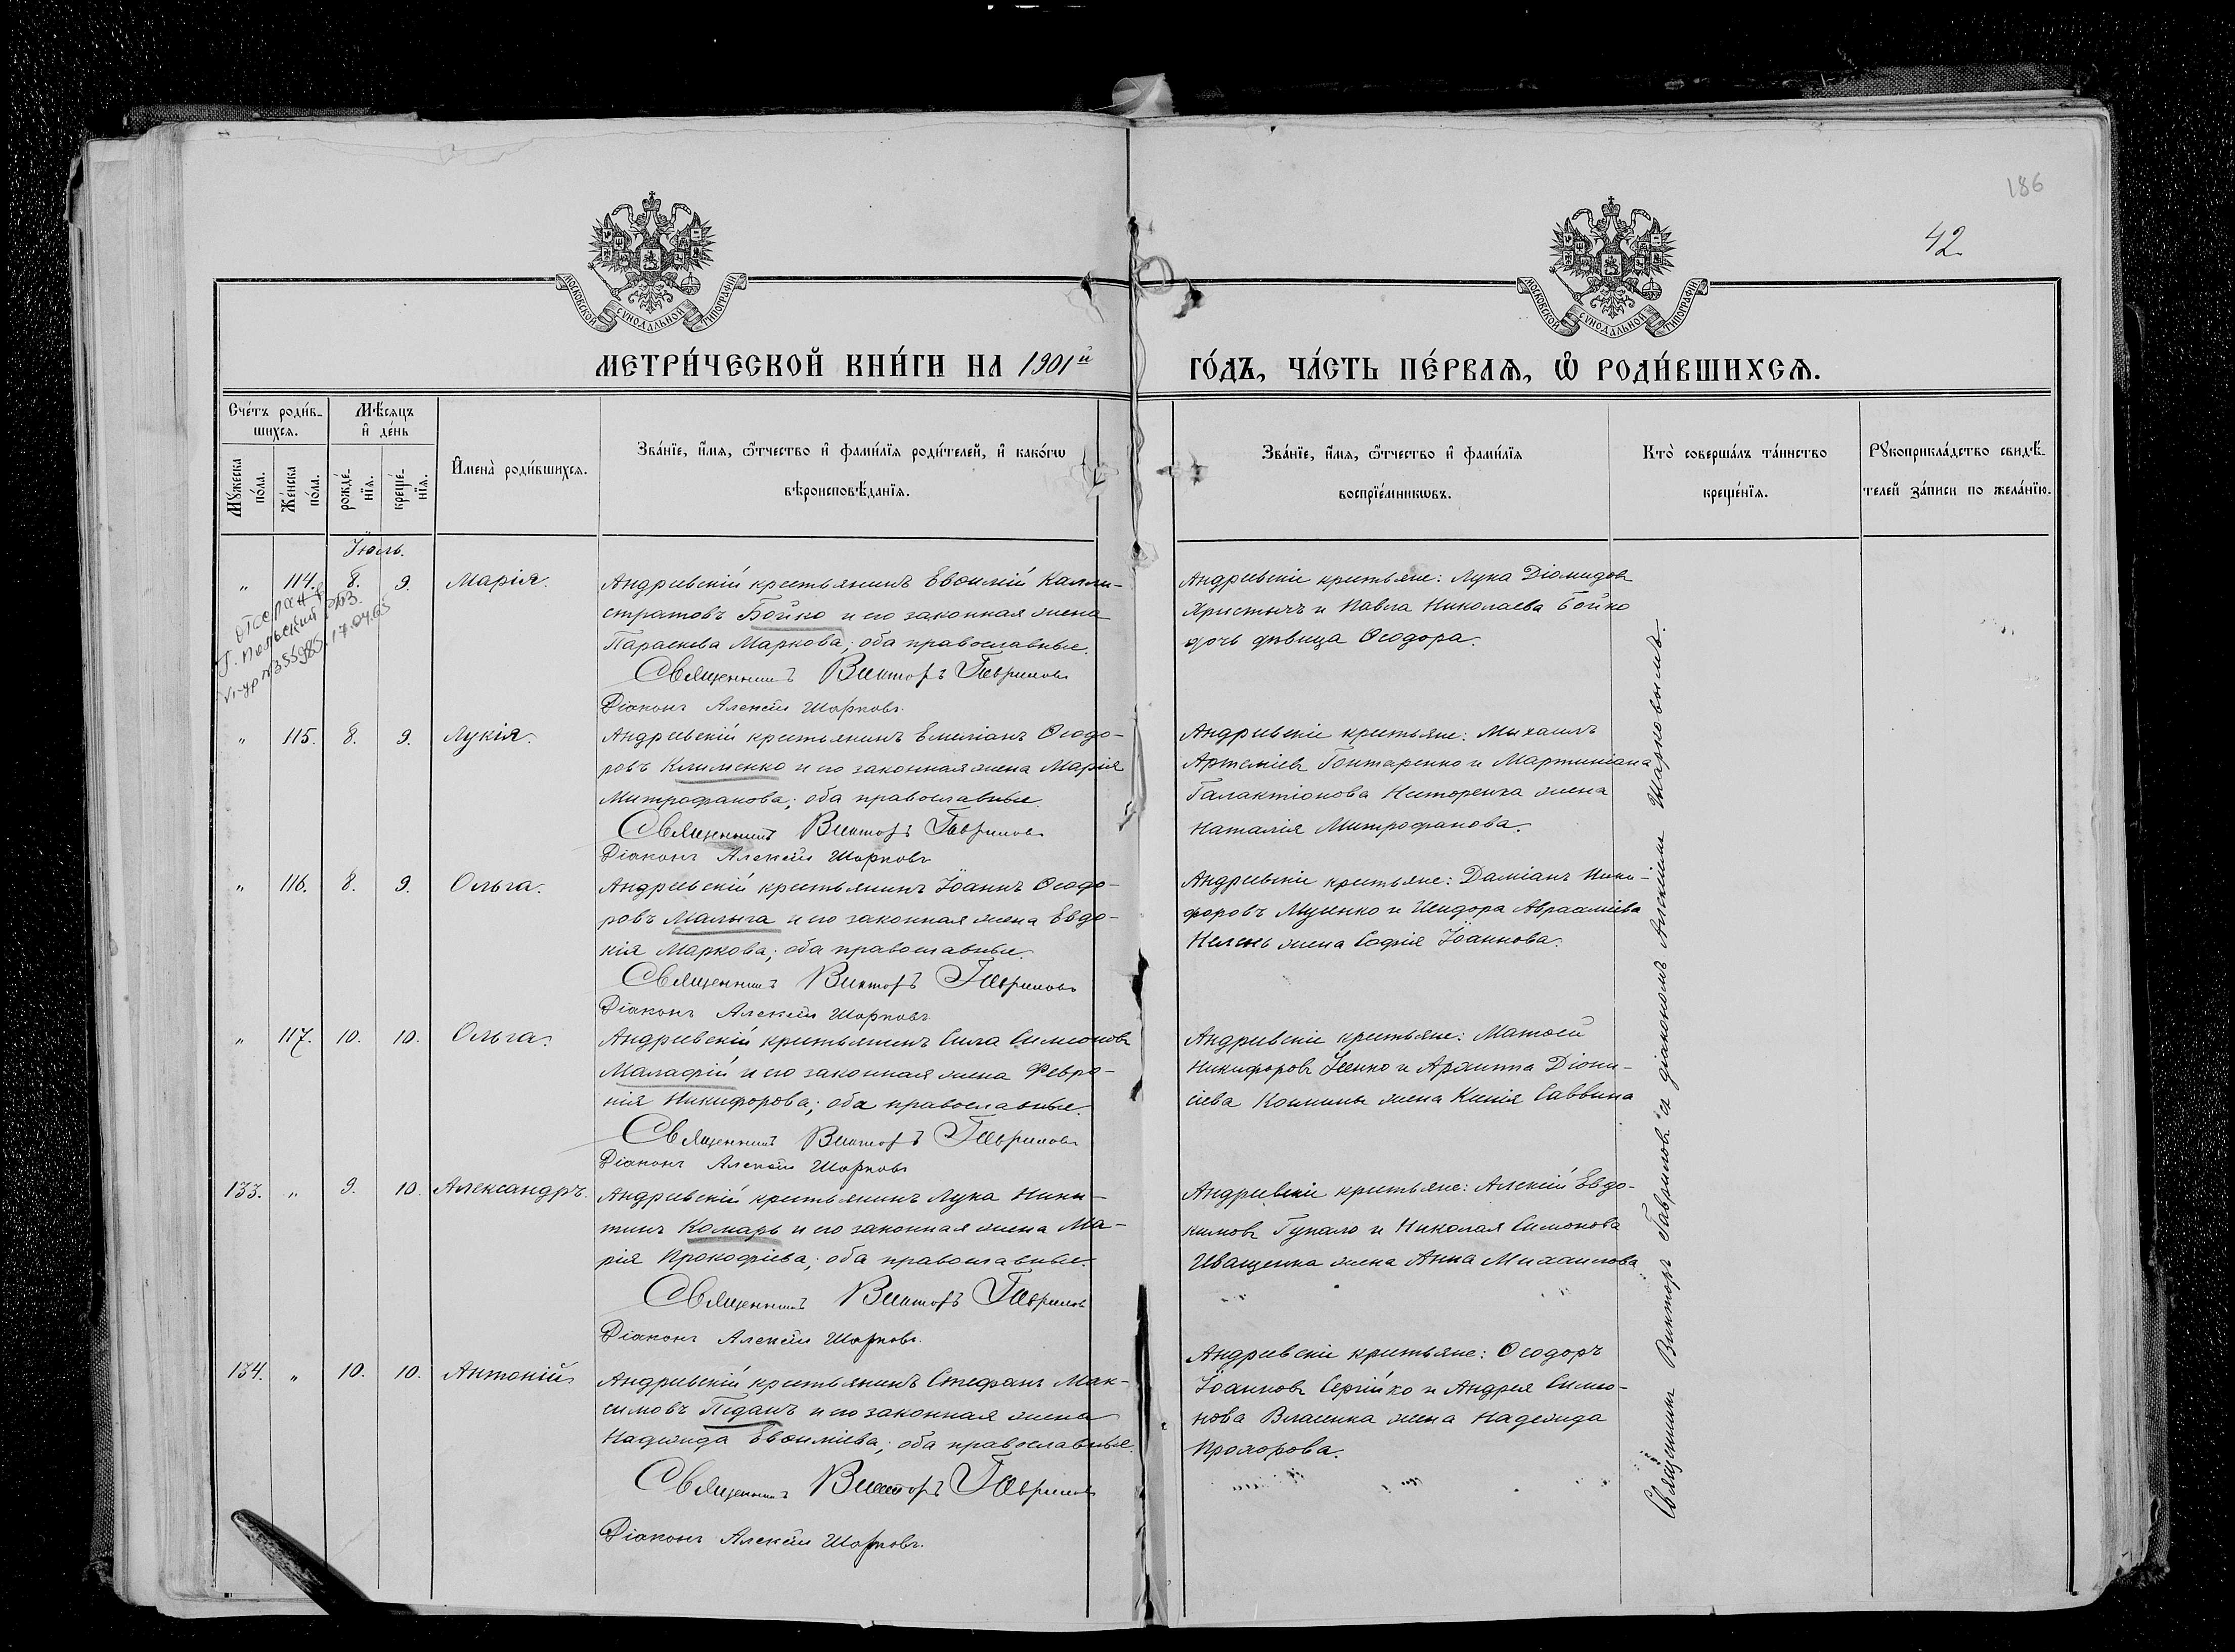 186
42.
МОСКОВСКОЙ СѴНОДАЛЬНОЙ ТИПОГРАФІИ
МОСКОВСКОЙ СѴНОДАЛЬНОЙ ТИПОГРАФІИ
МЕТРИ́ЧЕСКОЙ КНИ́ГИ НА 1901й ГО́ДЪ, ЧА́СТЬ ПЕ́РВАѦ, Ѡ РОДИ́ВШИХСѦ.
Сче́тъ роди́в-
шихсѧ.
Мѣ́сяцъ
и҆ де́нь
Мꙋ́жеска
по́ла.
Же́нска
по́ла.
рожде́-
нїѧ.
креще́-
нїѧ.
И҆мена̀ роди́вшихсѧ.
Зва́нїе, и҆́мѧ, ѻ҆́тчество и҆ фами́лїѧ роди́телей, и҆ како́гѡ
вѣроисповѣ́данїѧ.
Зва́нїе, и҆́мѧ, ѻ҆́тчество и҆ фами́лїѧ
воспрїе́мникѡвъ.
Кто̀ соверша́лъ та́инство
креще́нїѧ.
Рꙋкоприкла́дство свидѣ́-
телей за́писи по жела́нїю.
Іюль.
" 114. 8. 9. Марія.
Андреевскій крестьянинъ Евѳимій Калли-
стратовъ Бойко и его законная жена
Параскева Маркова; оба православные.
Священникъ Викторъ Гавриловъ
Діаконъ Алексѣй Шарковъ.
Андреевскіе крестьяне: Лука Діомидовъ
и Павла Николаева Бойко
дочь дѣвица Ѳеодора.
17.04.65
" 115. 8. 9. Лукія.
Андреевскій крестьянинъ Емеліанъ Ѳеодо-
ровъ Клименко и его законная жена Марія
Митрофанова; оба православные.
Священникъ Викторъ Гавриловъ
Діаконъ Алексѣй Шарковъ
Андреевскіе крестьяне: Михаилъ
Артеміевъ Гонтаренко и Мартиніана
Галактіонова Несторенка жена
Наталія Митрофанова.
" 116. 8. 9. Ольга.
Андреевскій крестьянинъ Іоаннъ Ѳеодо-
ровъ Малыга и его законная жена Евдо-
кія Маркова; оба православные.
Священникъ Викторъ Гавриловъ
Діаконъ Алексѣй Шарковъ
Андреевскіе крестьяне: Даміанъ Ники-
форовъ и Исидора Авраамиева
жена Софія Іоаннова.
" 117. 10. 10. Ольга.
Андреевскій крестьянинъ Сила Симеоновъ
Малафій и его законная жена Февро-
нія Никифорова; оба православные.
Священникъ Викторъ Гавриловъ
Діаконъ Алексѣй Шарковъ
Андреевскіе крестьяне: Матѳей
Никифоровъ и Архиппа Діони-
сіева жена Саввина
133. " 9. 10. Александръ.
Андреевскій крестьянинъ Лука Ники-
тинъ Комарь и его законная жена Ма-
рія Прокофіева; оба православные.
Священникъ Викторъ Гавриловъ
Діаконъ Алексѣй Шарковъ.
Андреевскіе крестьяне: Алексій Евдо-
кимовъ Гупало и Николая Симонова
Иващенка жена Анна Михаилова
134. " 10. 10. Антоній
Андреевскій крестьянинъ Стефанъ Мак-
симовъ Педанъ и его законная жена
Надежда Евѳиміева; оба православные.
Священникъ Викторъ Гавриловъ
Діаконъ Алексѣй Шарковъ.
Андреевскіе крестьяне: Ѳеодоръ
Іоанновъ Сергійко и Андрея Симео-
нова Власенка жена Надежда
Прохорова.
Священникъ Викторъ Гавриловъ съ діакономъ Алексіемъ Шарковымъ.